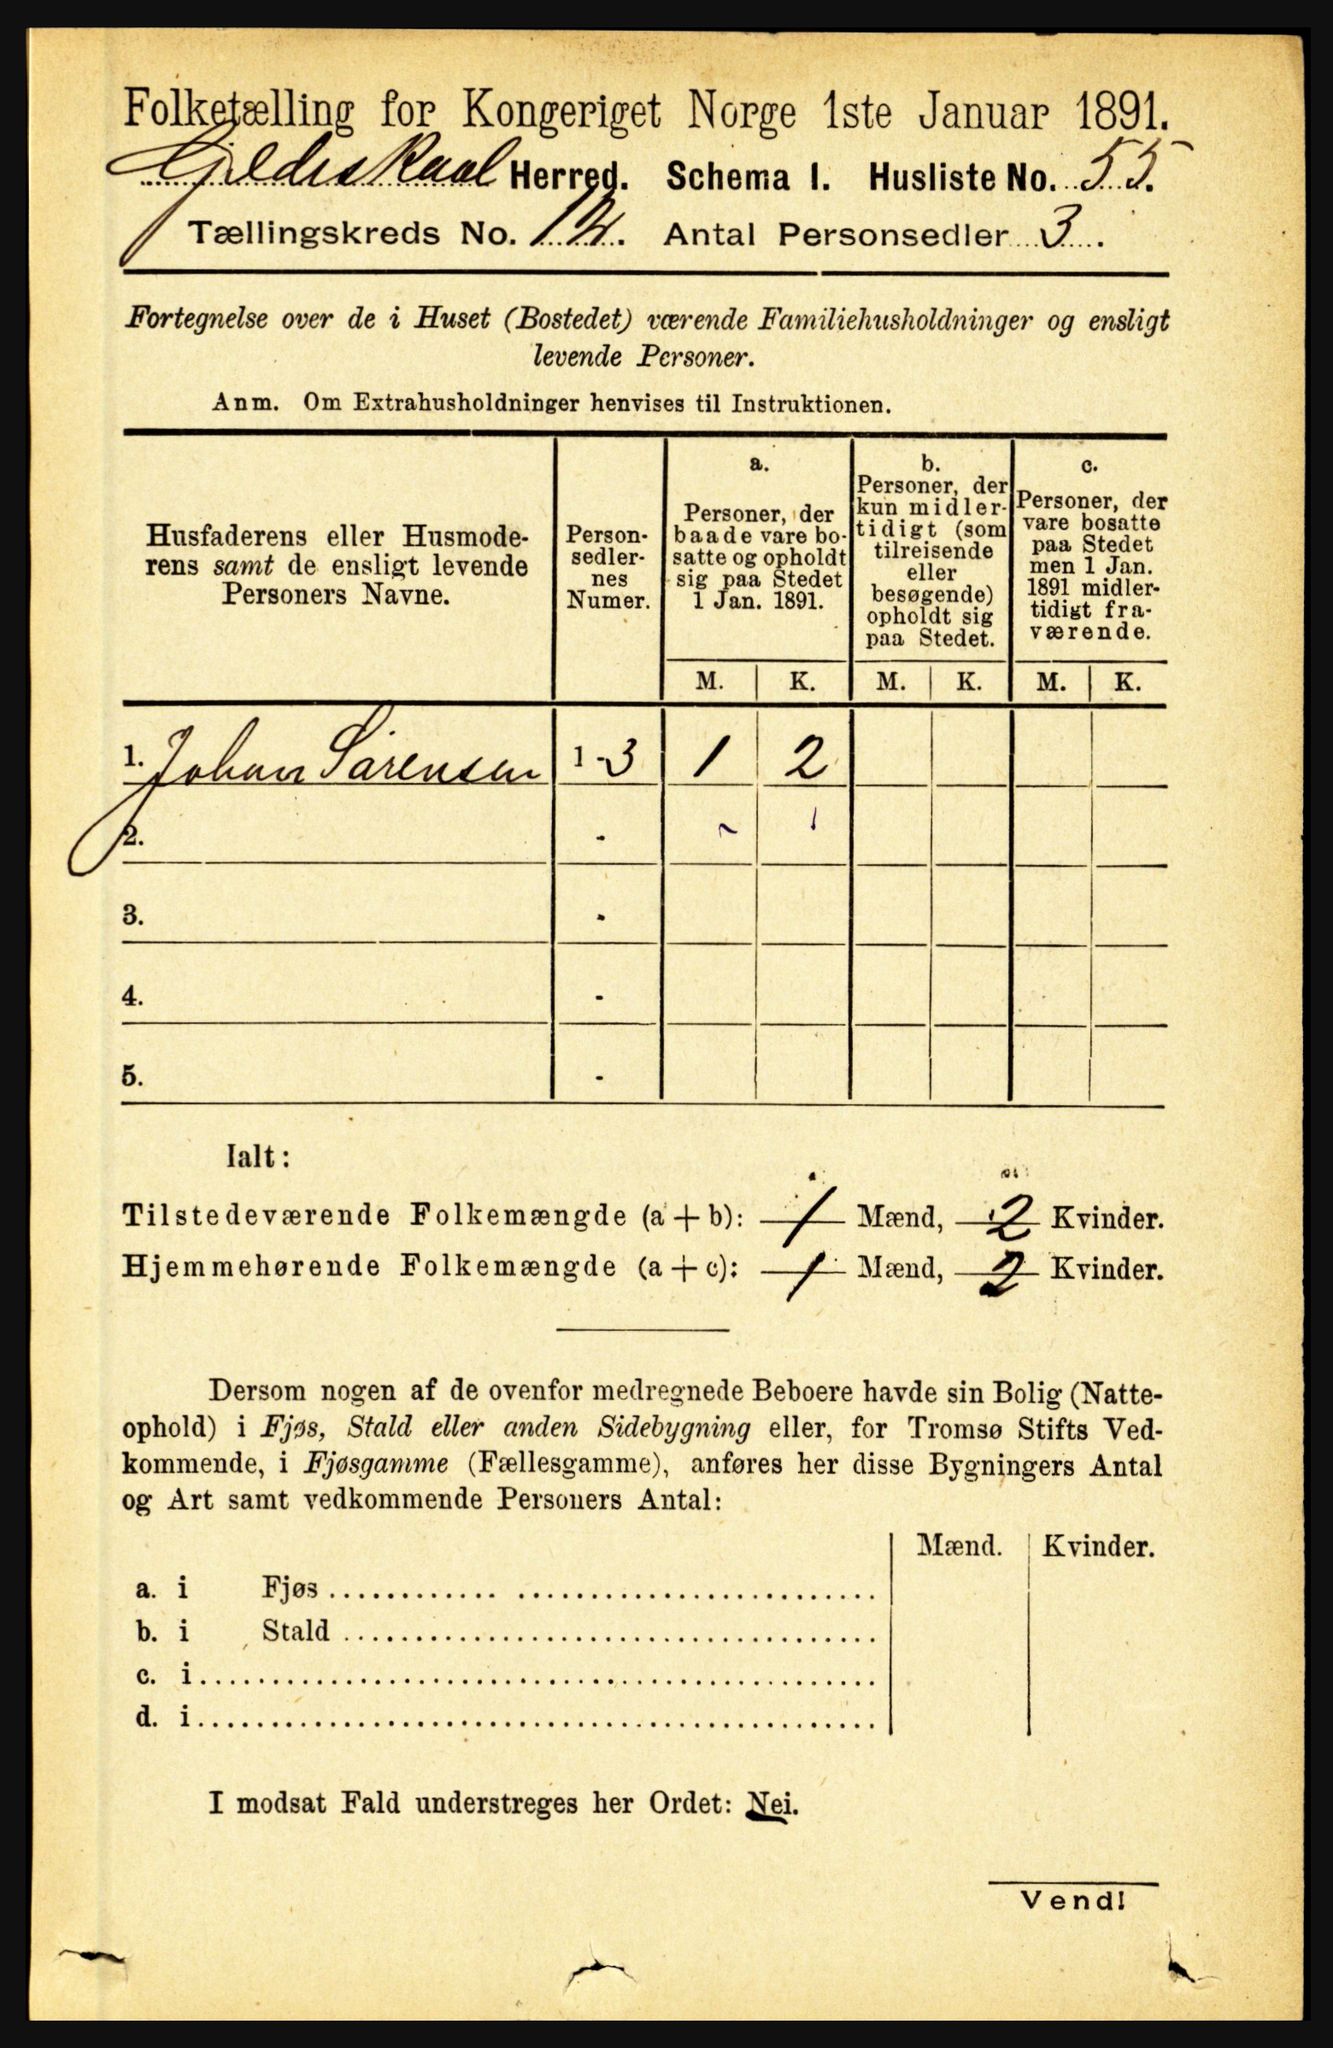 Folketælling for Kongeriget Norge 1ste Januar 1891.
Gildeskaal Herred. Schema I. Husliste No. 55.
Tællingskreds No. 12. Antal Personsedler 3.
Fortegnelse over de i Huset (Bostedet) værende Familiehusholdninger og ensligt
levende Personer.
Anm. Om Extrahusholdninger henvises til Instruktionen.
Husfaderens eller Husmode-
rens samt de ensligt levende
Personers Navne.
Person-
sedler-
nes
Numer.
a.
Personer, der
baade vare bo-
satte og opholdt
sig paa Stedet
1 Jan. 1891.
b.
Personer, der
kun midler-
tidigt (som
tilreisende
eller
besøgende)
opholdt sig
paa Stedet.
c.
Personer, der
vare bosatte
paa Stedet
men 1 Jan.
1891 midler-
tidigt fra-
værende.
M. K. M. K. M. K.
1. Johan Sørensen 1-3 1 2
2. -
3. -
4. -
5. -
Ialt:
Tilstedeværende Folkemængde (a + b): 1 Mænd, 2 Kvinder.
Hjemmehørende Folkemængde (a + c): 1 Mænd, 2 Kvinder.
Dersom nogen af de ovenfor medregnede Beboere havde sin Bolig (Natte-
ophold) i Fjøs, Stald eller anden Sidebygning eller, for Tromsø Stifts Ved-
kommende, i Fjøsgamme (Fællesgamme), anføres her disse Bygningers Antal
og Art samt vedkommende Personers Antal:
Mænd. Kvinder.
a. i Fjøs
b. i Stald
c. i
d. i
I modsat Fald understreges her Ordet: Nei.
Vend!